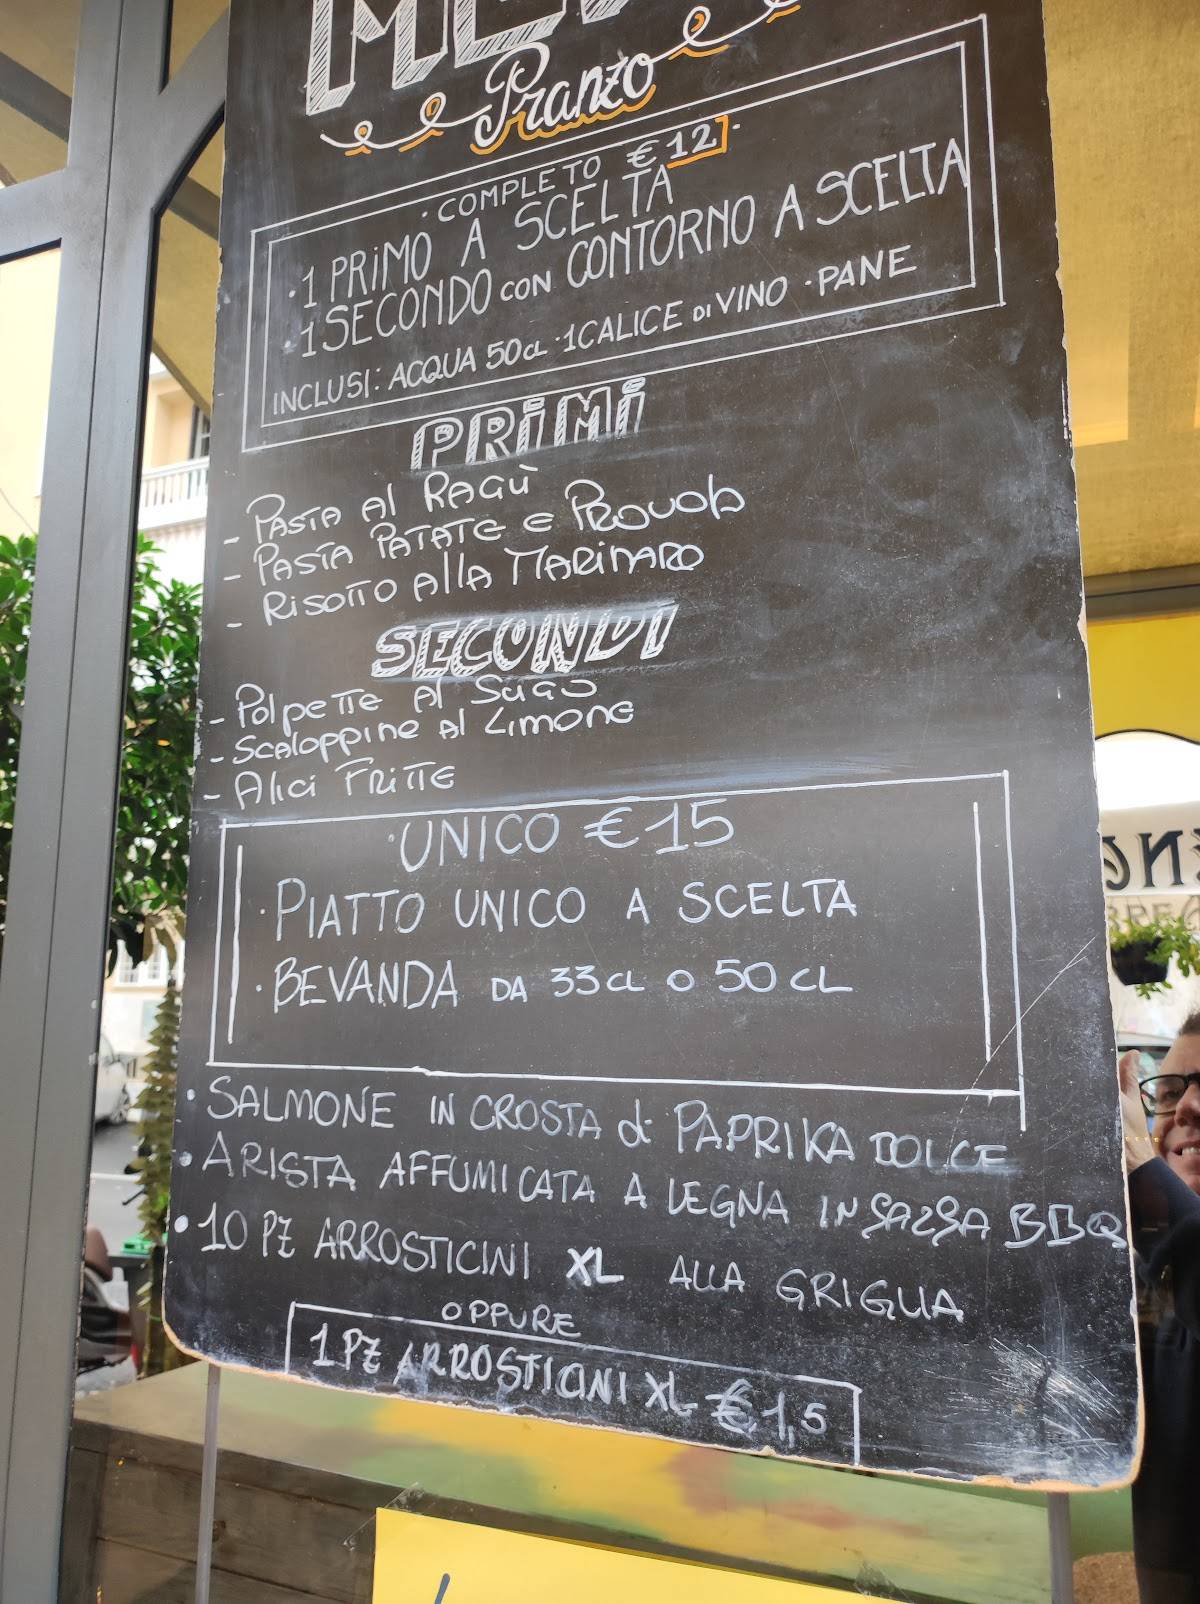 Pranzo
· COMPLETO € 12 ·
· 1 PRIMO A SCELTA
· 1 SECONDO CON CONTORNO A SCELTA
INCLUSI: ACQUA 50CL · 1 CALICE DI VINO · PANE
PRIMI
- PASTA AL RAGÙ
- PASTA PATATE E PROVOLA
- RISOTTO ALLA MARINARO
SECONDI
- POLPETTE AL SUGO
- SCALOPPINE AL LIMONE
- ALICI FRITTE
· UNICO € 15
· PIATTO UNICO A SCELTA
· BEVANDA DA 33CL O 50CL
· SALMONE IN CROSTA di PAPRIKA DOLCE
· ARISTA AFFUMICATA A LEGNA IN SALSA BBQ
· 10 PZ ARROSTICINI XL ALLA GRIGLIA
OPPURE
1 PZ ARROSTICINI XL € 1,5